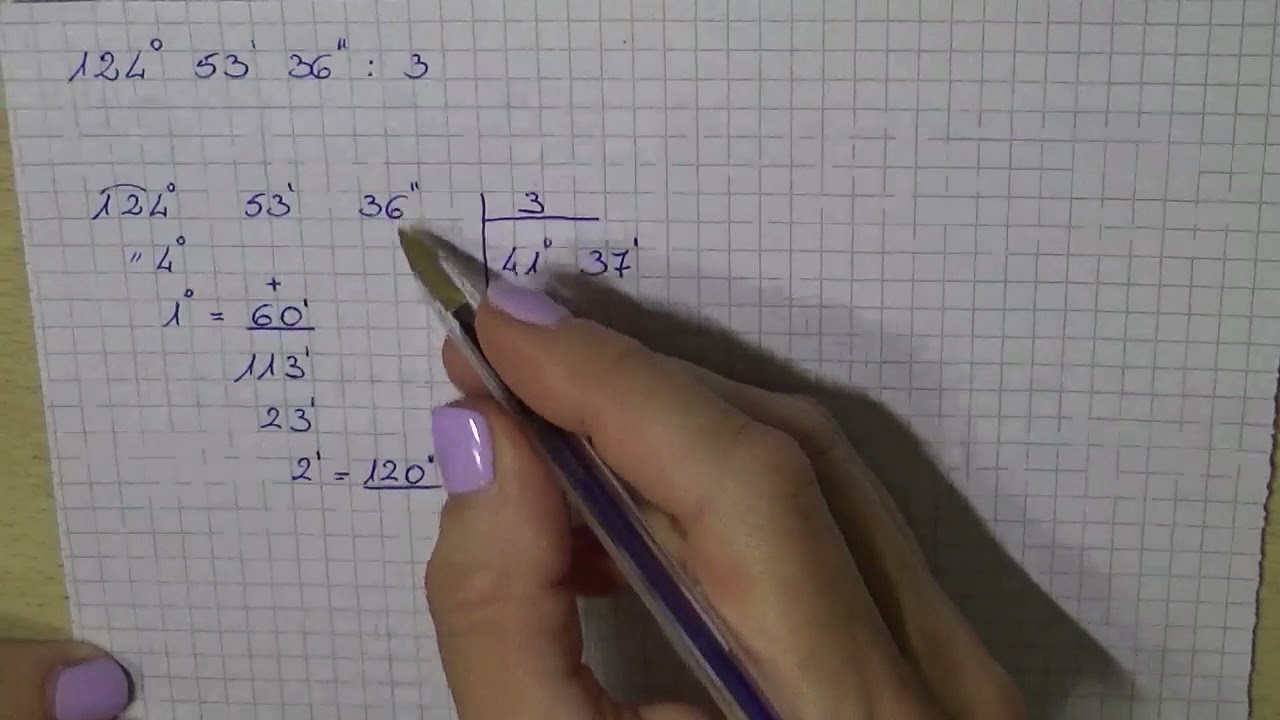 124° 53' 36" : 3
124° 53' 36" 3
" 4° 41° 37'
+
1° = 60'
113'
23'
2' = 120"